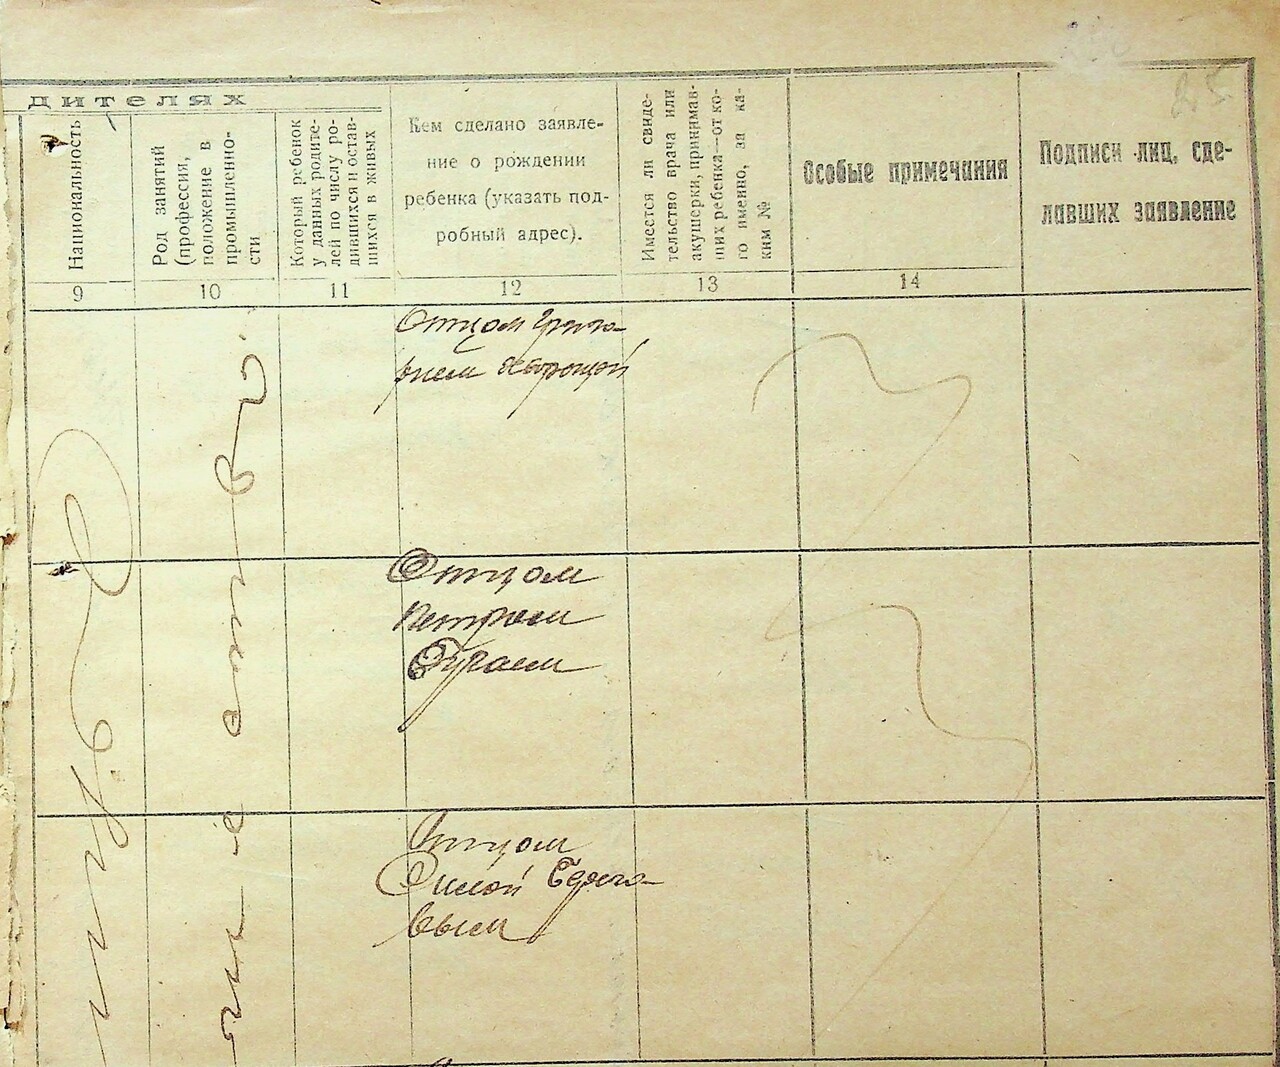 дителях
25
Национальность
Род занятий
(профессия,
положение в
промышленно-
сти
Который ребенок
у данных родите-
лей по числу ро-
дившихся и остав-
шихся в живых
Кем сделано заявле-
ние о рождении
ребенка (указать под-
робный адрес).
Имеется ли свиде-
тельство врача или
акушерки, принимав-
ших ребенка—от ко-
го именно, за ка-
ким №
Особые примечания
Подписи лиц, сде-
лавших заявление
9
10
11
12
13
14
Отцом Григо-
рием
Отцом
Петром
Отцом